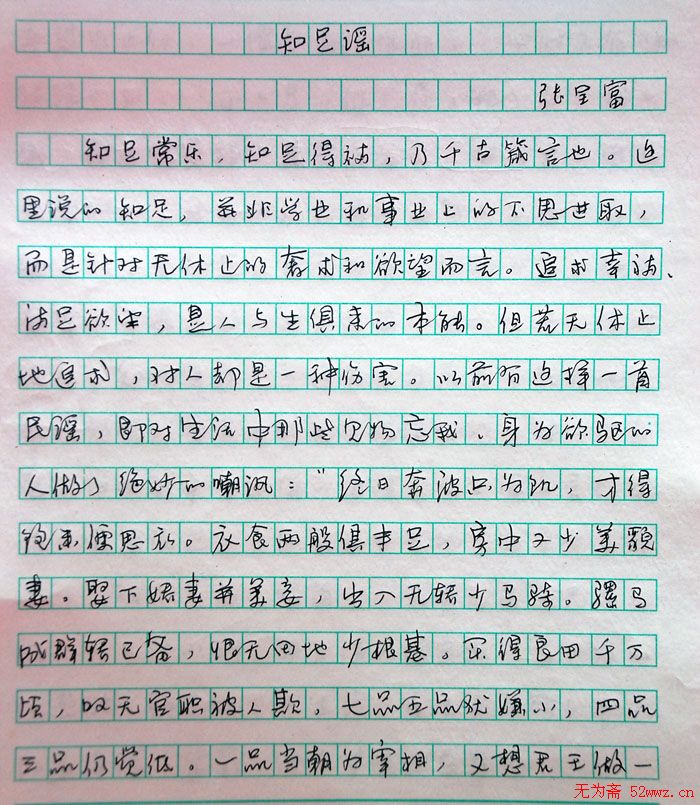 知足谣
张呈富
知足常乐，知足得福，乃千古箴言也。这
里说的知足，并非学也和事业上的不思进取，
而是针对无休止的奢求和欲望而言。追求幸福、
满足欲望，是人与生俱来的本能。但若无休止
地追求，对人却是一种伤害。以前有这样一首
民谣，即对生活中那些见物忘我、身为欲驱的
人做了绝妙的嘲讽："终日奔波只为饥，才得
饱来便思衣。衣食两般俱丰足，房中又少美貌
妻。娶下娇妻并美妾，出入无轿少马骑。骡马
成群轿已备，恨无田地少根基。买得良田千万
顷，叹无官职被人欺，七品五品犹嫌小，四品
三品仍觉低。一品当朝为宰相，又想君王做一
无为斋 52wwz.cn